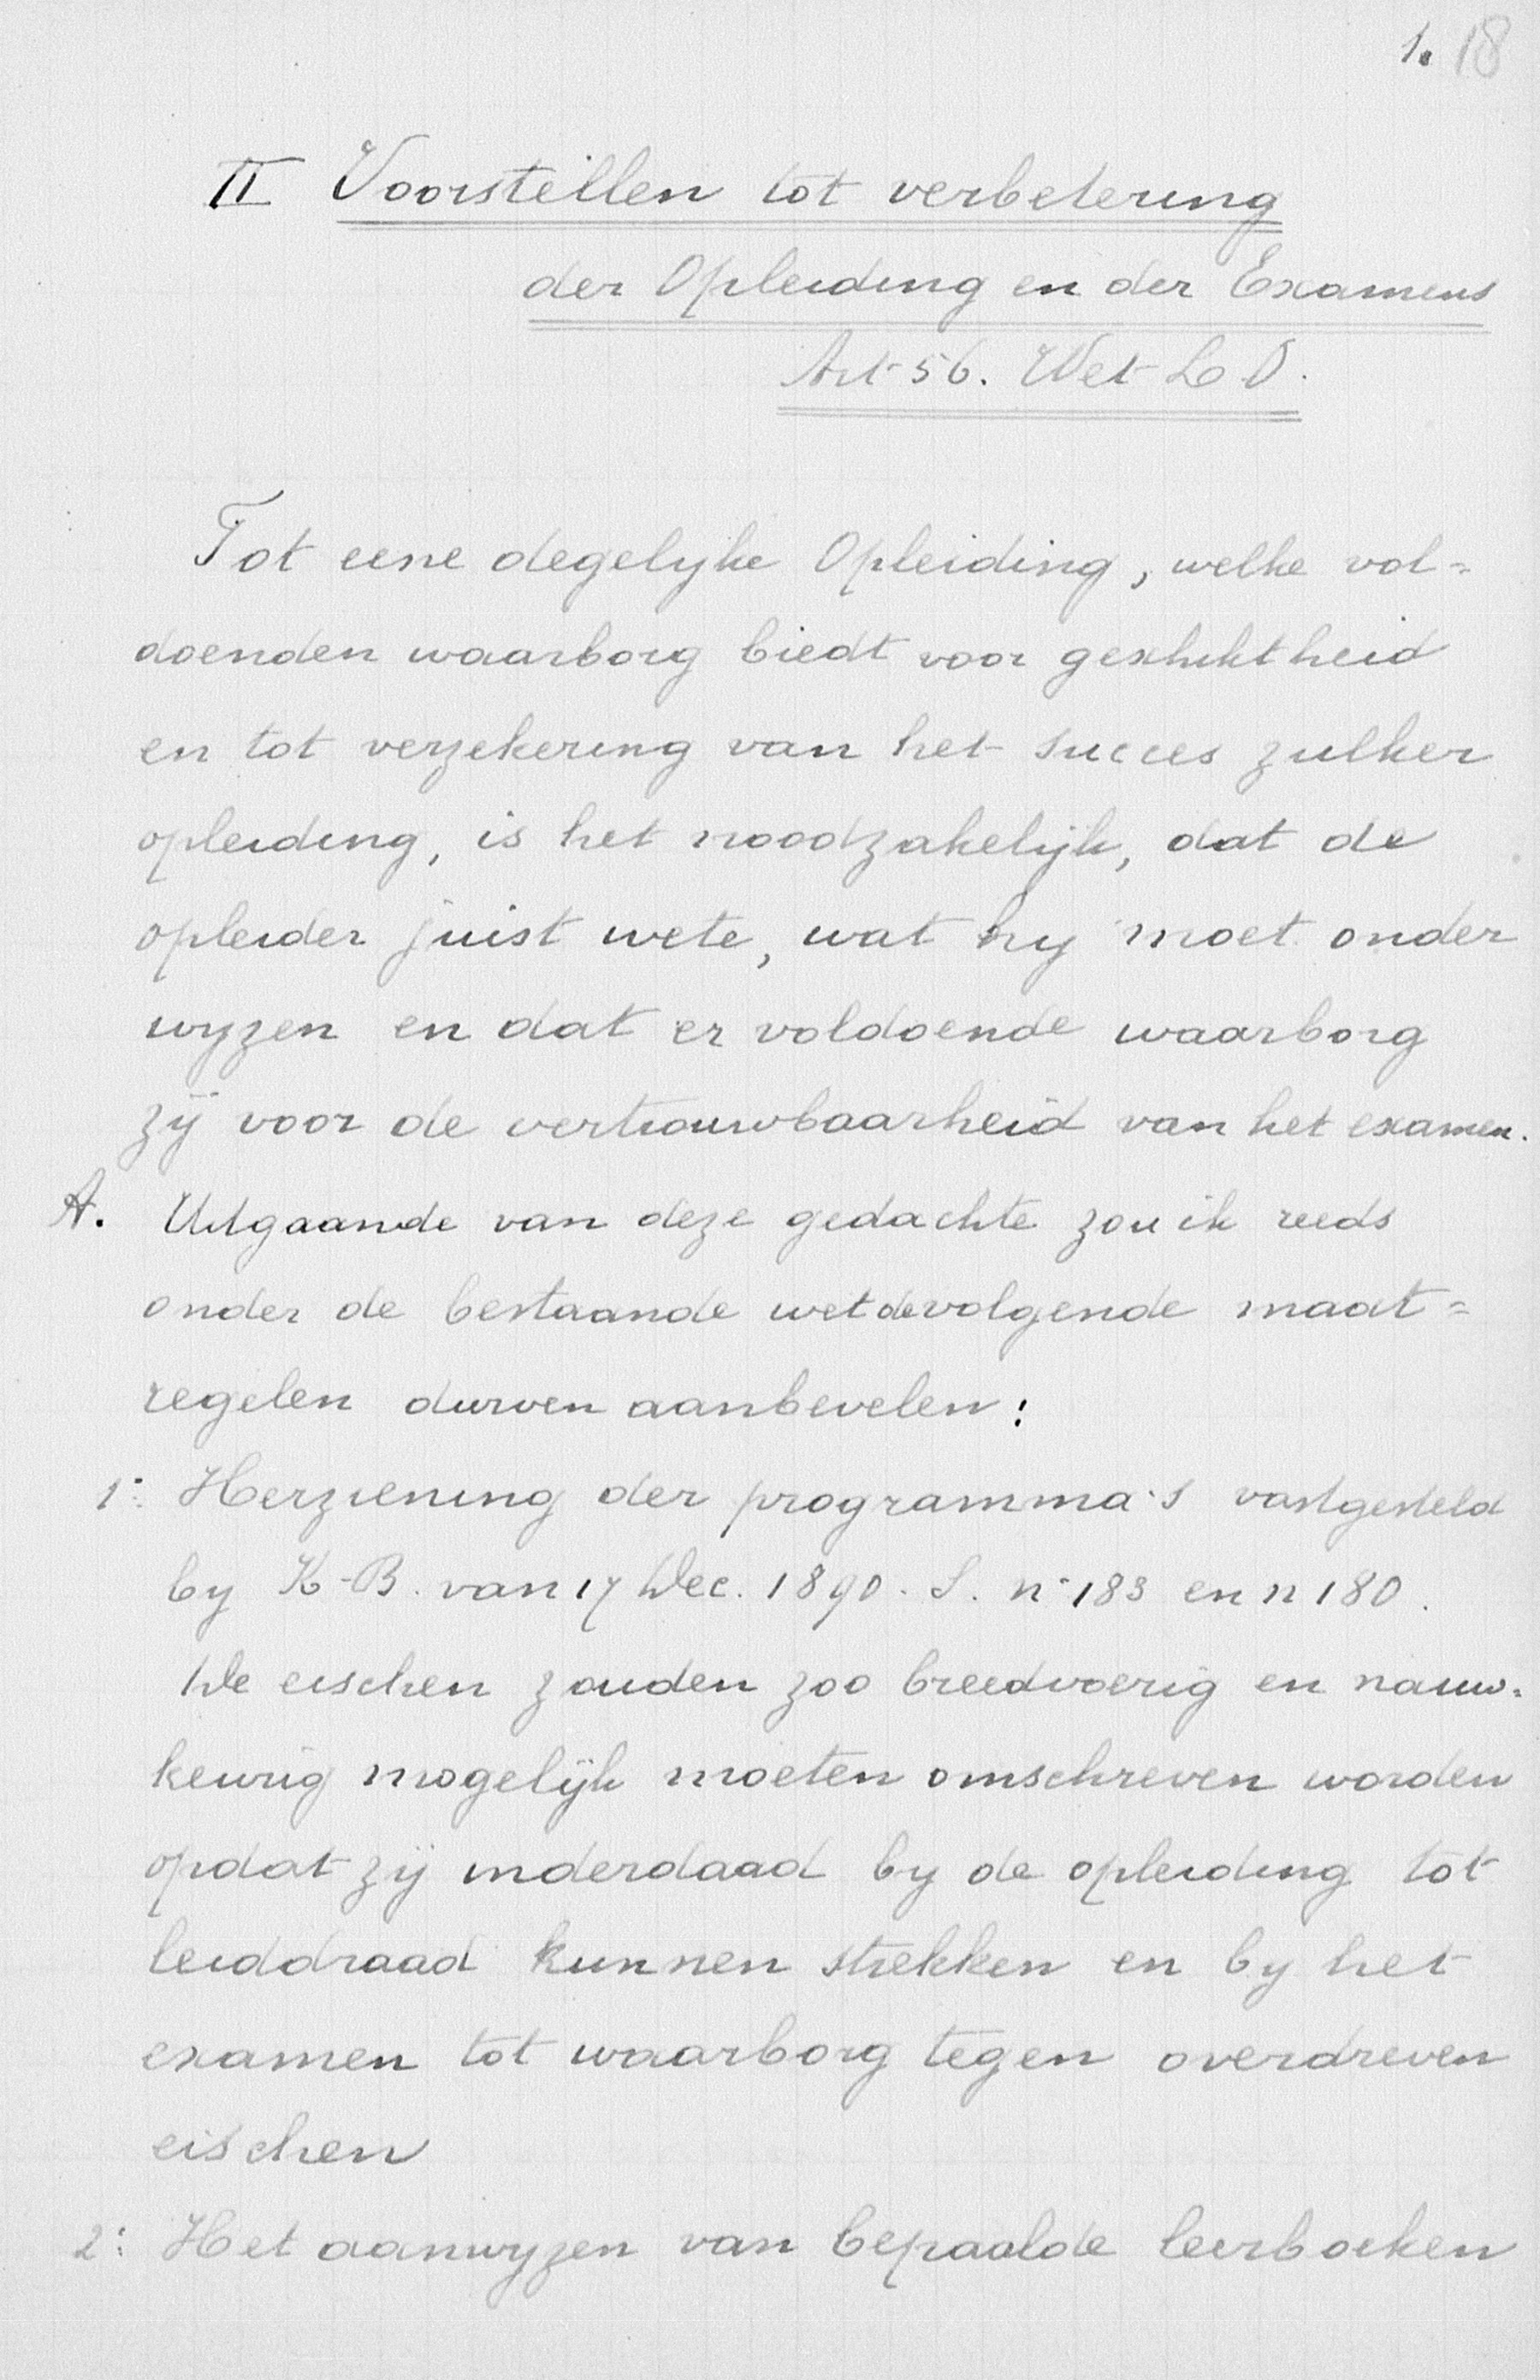 1. 18
II Voorstellen tot verbetering
der Opleiding en der Examens
Art 56. Wet L O.
Tot eene degelijke Opleiding, welke vol=
doenden waarborg biedt voor geschiktheid
en tot verzekering van het succes zulker
opleiding, is het noodzakelijk, dat de
opleider juist wete, wat hy moet onder
wyzen en dat er voldoende waarborg
zij voor de vertrouwbaarheid van het examen.
A. Uitgaande van deze gedachte zou ik reeds
onder de bestaande wet de volgende maat=
regelen durven aanbevelen:
1º. Herziening der programma's vastgesteld
by K-B. van 17 Dec. 1890. S. nº 183 en n 180.
De eischen zouden zoo breedvoerig en nauw=
keurig mogelijk moeten omschreven worden
opdat zij inderdaad by de opleiding tot
leiddraad kunnen strekken en by het
examen tot waarborg tegen overdreven
eischen
2º: Het aanwyzen van bepaalde leerboeken